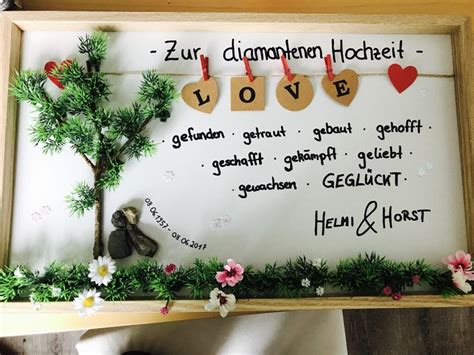 - Zur diamantenen Hochzeit -
LOVE
· gefunden · getraut · gebaut · gehofft ·
geschafft · gekämpft · geliebt ·
gewachsen · GEGLÜCKT ·
HELMI & HORST
08.06.1957 - 08.06.2017